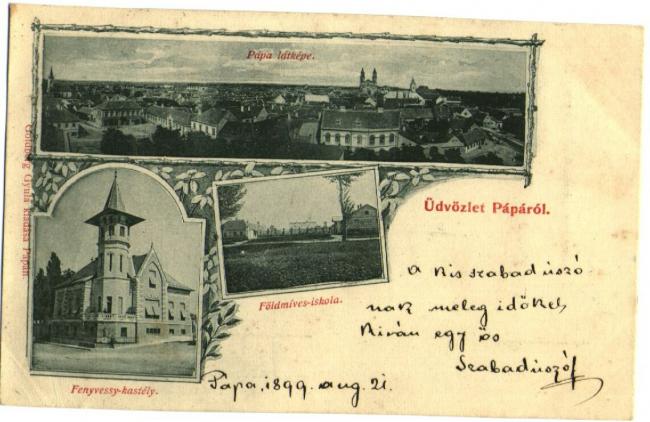 Pápa látképe.
Goldberg Gyula kiadása Pápán.
Üdvözlet Pápáról.
Földmíves-iskola.
Fenyvessy-kastély.
a kis szabadúszó
nak meleg időket
kíván egy ős
Szabadúszó
Pápa, 1899. aug. 21.